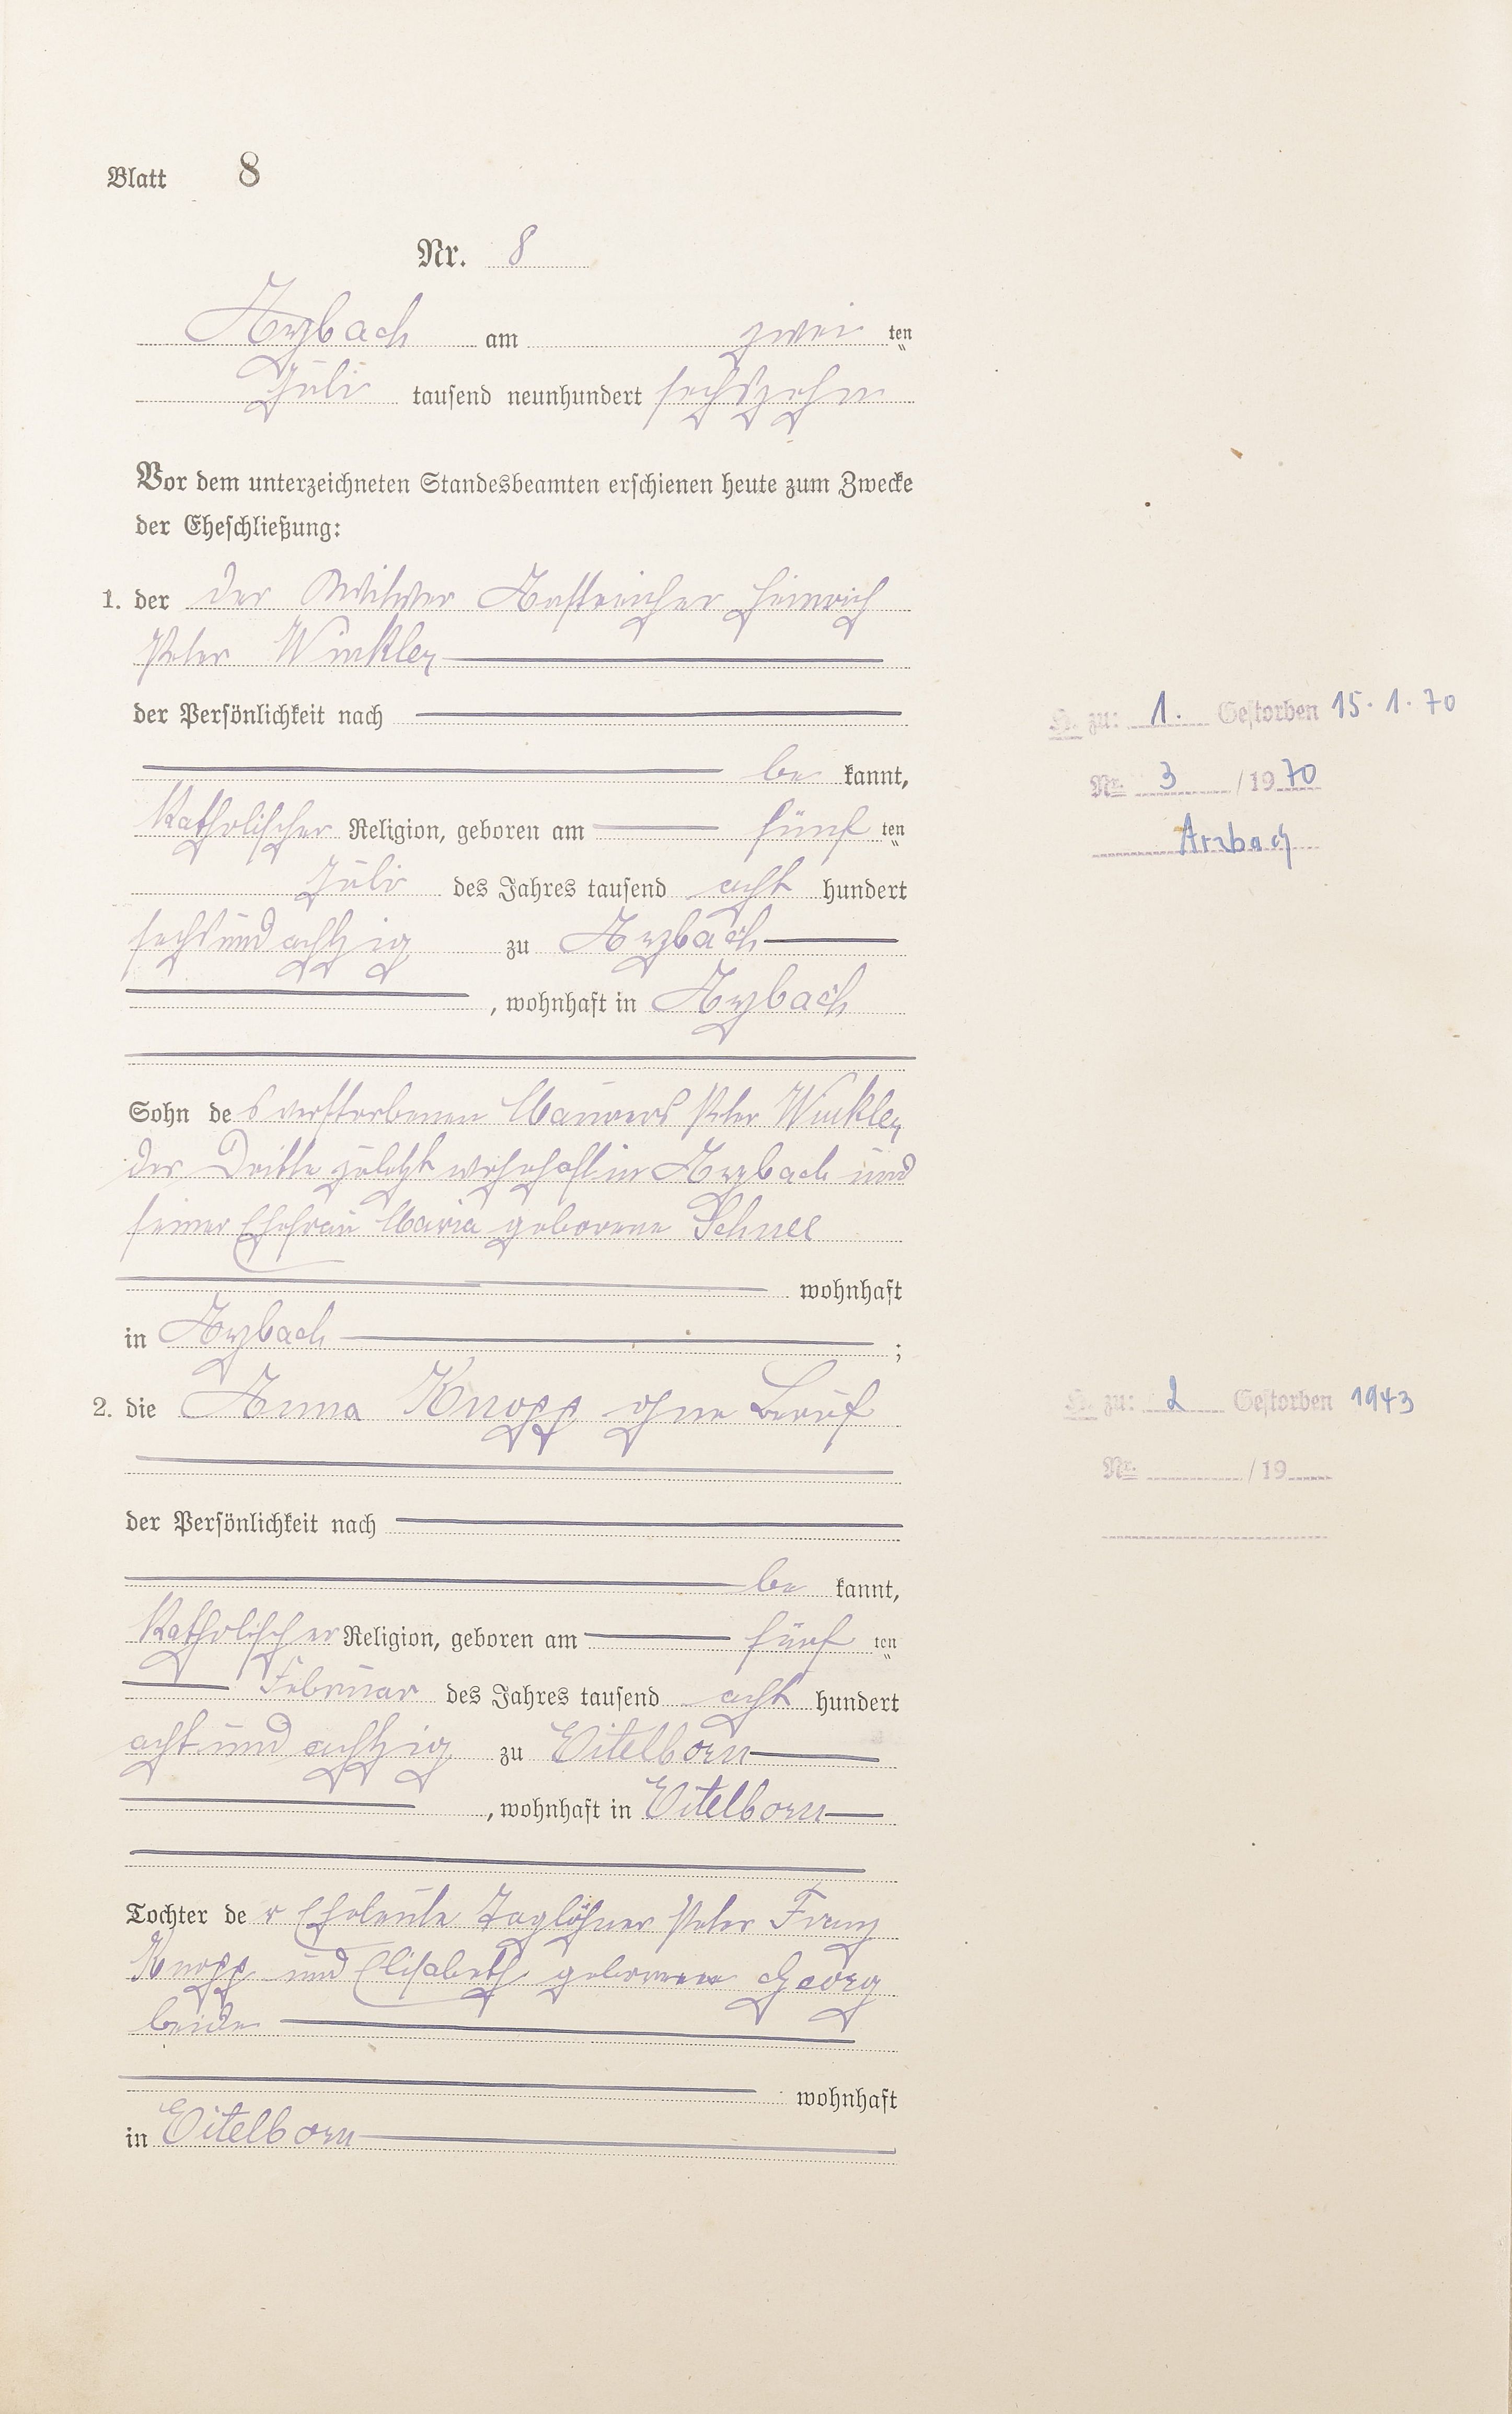 Blatt 8
Nr. 8
Arzbach am zwei ten
Juli tausend neunhundert sechszehn
Vor dem unterzeichneten Standesbeamten erschienen heute zum Zwecke
der Eheschließung:
1. der der Witwer Anstreicher Heinrich
Peter Winkler
der Persönlichkeit nach
be kannt,
Katholischer Religion, geboren am fünf ten
Juli des Jahres tausend acht hundert
sechsundachtzig zu Arzbach
, wohnhaft in Arzbach
Sohn des verstorbenen Maurers Peter Winkler
der Dritte zuletzt wohnhaft in Arzbach und
seiner Ehefrau Maria geborene Schnee
wohnhaft
in Arzbach ;
2. die Anna Knopp ohne Beruf
der Persönlichkeit nach
be kannt,
Katholischer Religion, geboren am fünf ten
Februar des Jahres tausend acht hundert
acht und achtzig zu Eitelborn
, wohnhaft in Eitelborn
Tochter der Eheleute Taglöhner Peter Franz
Knopp und Elisabeth geborenen Georg
beide
wohnhaft
in Eitelborn
H. zu: 1. Gestorben 15.1.70
Nr. 3 /1970
Arzbach
H. zu: 2 Gestorben 1943
Nr. /19